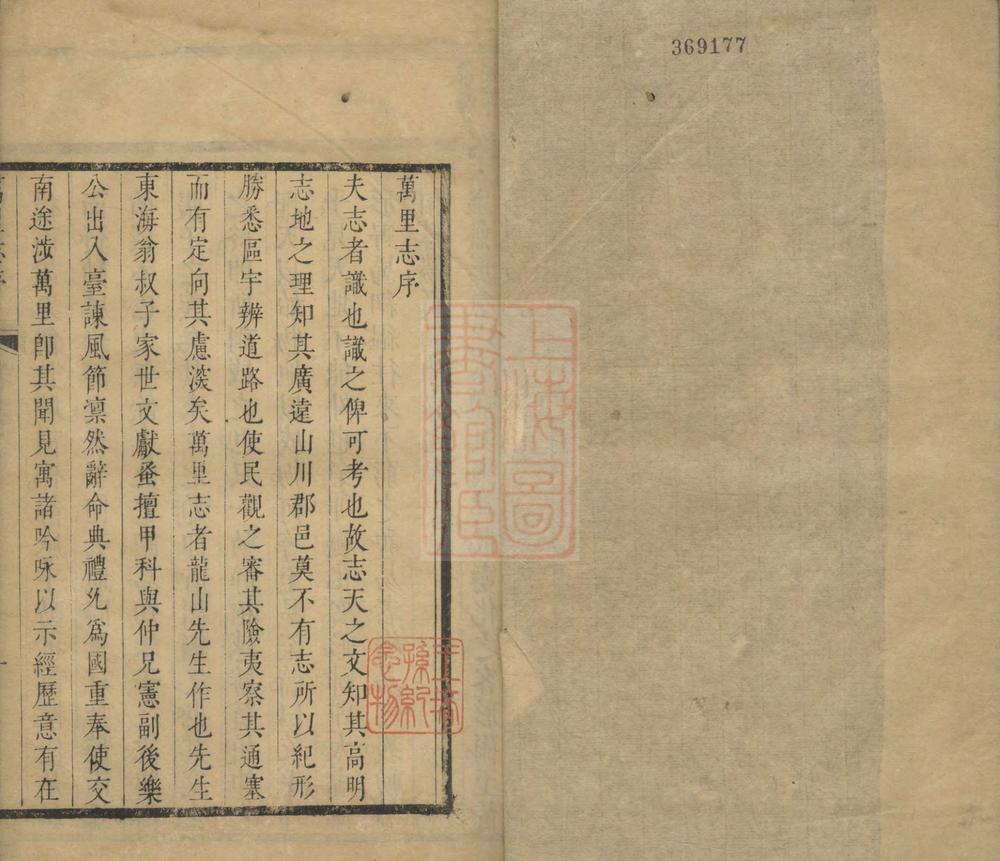 369177
萬里志序
夫志者識也識之俾可考也故志天之文知其高明
志地之理知其廣遠山川郡邑莫不有志所以紀形
勝悉區宇辨道路也使民觀之審其險夷察其通塞
而有定向其慮深矣萬里志者龍山先生作也先生
東海翁叔子家世文獻蚤擅甲科與仲兄憲副後樂
公出入臺諫風節凛然辭命典禮允爲國重奉使交
南途涉萬里卽其聞見寓諸吟咏以示經歷意有在
萬里志序
一
上海圖
書館藏